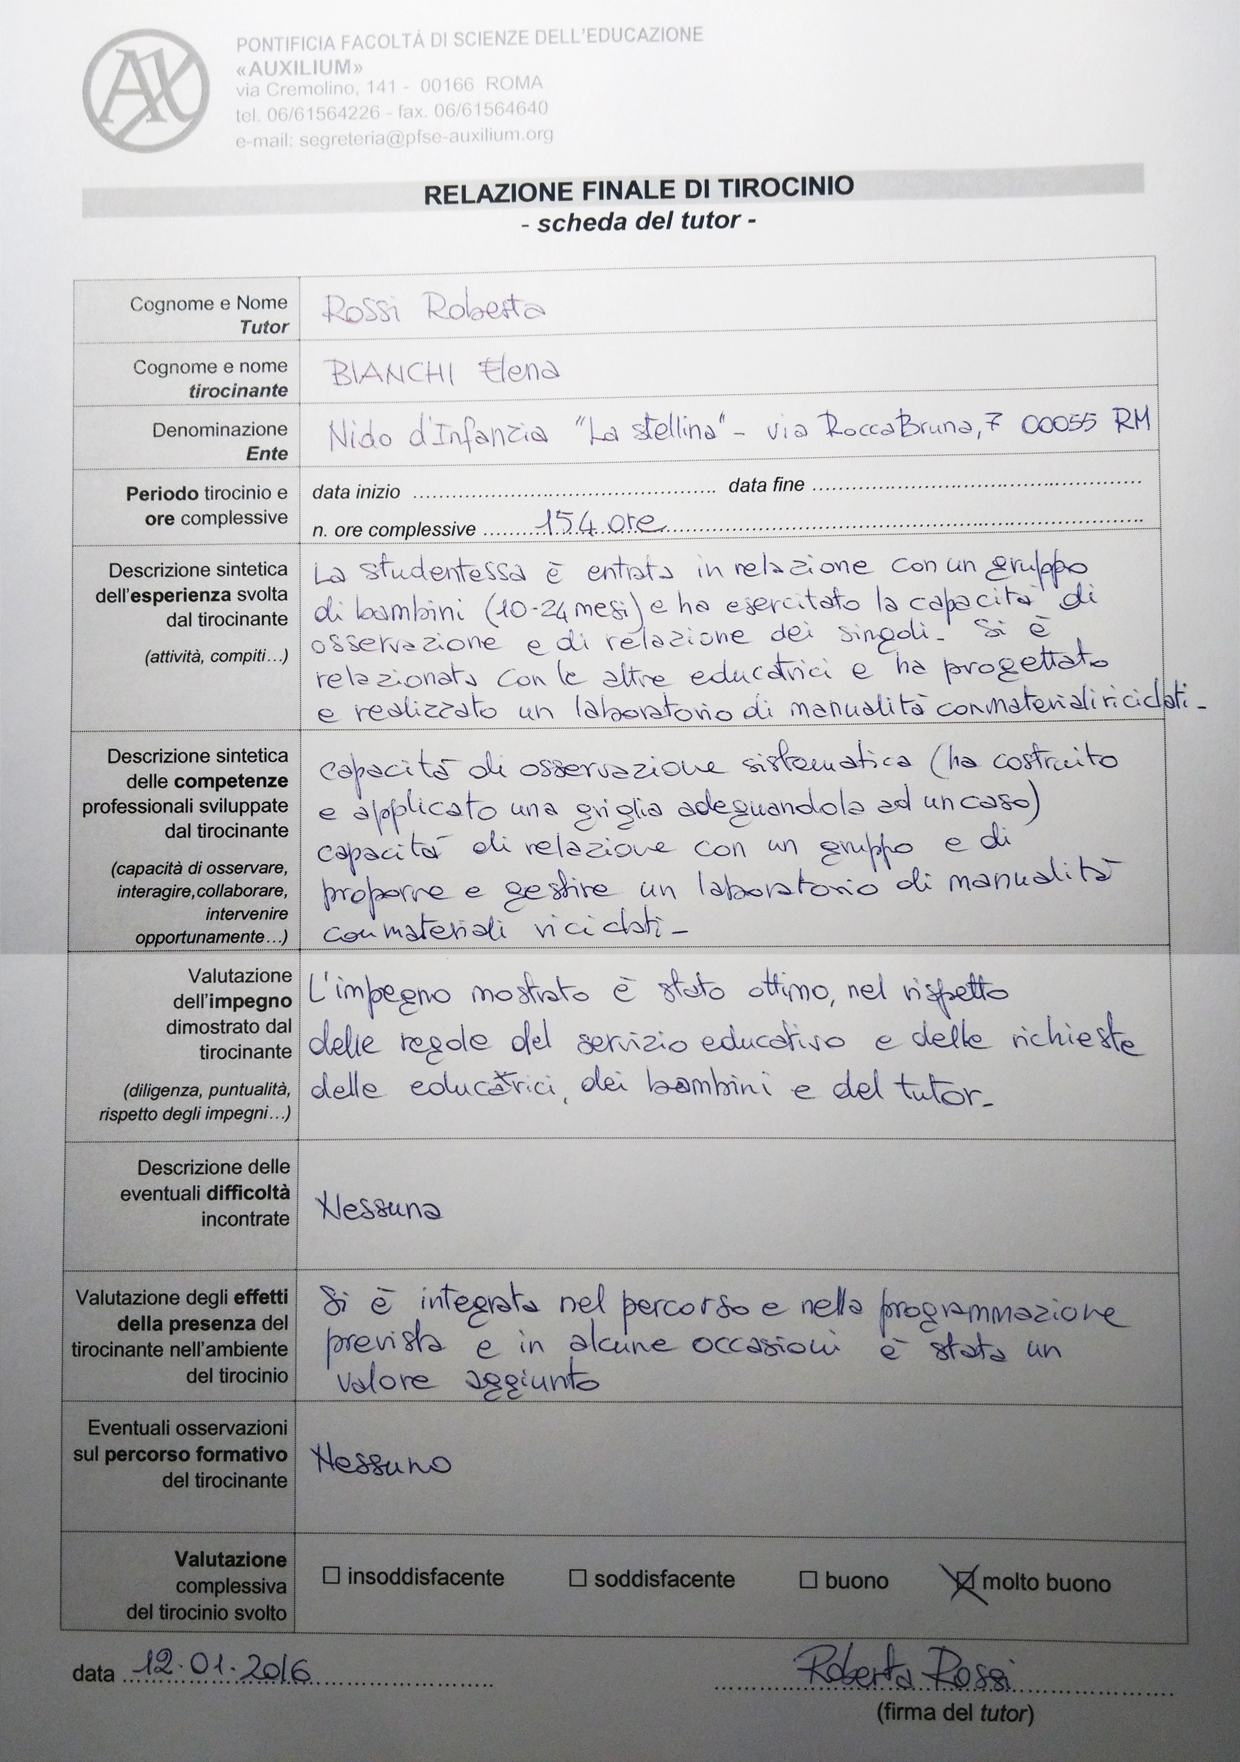 PONTIFICIA FACOLTÁ DI SCIENZE DELL'EDUCAZIONE
«AUXILIUM»
via Cremolino, 141 - 00166 ROMA
tel. 06/61564226 - fax. 06/61564640
e-mail: segreteria@pfse-auxilium.org
RELAZIONE FINALE DI TIROCINIO
- scheda del tutor -
Cognome e Nome
Tutor
Rossi Roberta
Cognome e nome
tirocinante
BIANCHI Elena
Denominazione
Ente
Nido d'Infanzia "La stellina" - via RoccaBruna, 7 00055 RM
Periodo tirocinio e
ore complessive
data inizio ........................ data fine ........................
n. ore complessive ........ 154 ore ........................
Descrizione sintetica
dell'esperienza svolta
dal tirocinante
(attività, compiti…)
La studentessa è entrata in relazione con un gruppo
di bambini (10-24 mesi) e ha esercitato la capacità di
osservazione e di relazione dei singoli. Si è
relazionata con le altre educatrici e ha progettato
e realizzato un laboratorio di manualità con materiali riciclati -
Descrizione sintetica
delle competenze
professionali sviluppate
dal tirocinante
(capacità di osservare,
interagire,collaborare,
intervenire
opportunamente…)
capacità di osservazione sistematica (ha costruito
e applicato una griglia adeguandola ad un caso)
capacità di relazione con un gruppo e di
proporre e gestire un laboratorio di manualità
con materiali riciclati -
Valutazione
dell'impegno
dimostrato dal
tirocinante
(diligenza, puntualità,
rispetto degli impegni…)
L'impegno mostrato è stato ottimo, nel rispetto
delle regole del servizio educativo e delle richieste
delle educatrici, dei bambini e del tutor.
Descrizione delle
eventuali difficoltà
incontrate
Nessuna
Valutazione degli effetti
della presenza del
tirocinante nell'ambiente
del tirocinio
Si è integrata nel percorso e nella programmazione
prevista e in alcune occasioni è stata un
valore aggiunto
Eventuali osservazioni
sul percorso formativo
del tirocinante
Nessuno
Valutazione
complessiva
del tirocinio svolto
☐ insoddisfacente ☐ soddisfacente ☐ buono ☒ molto buono
data 12.01.2016
Roberta Rossi
(firma del tutor)